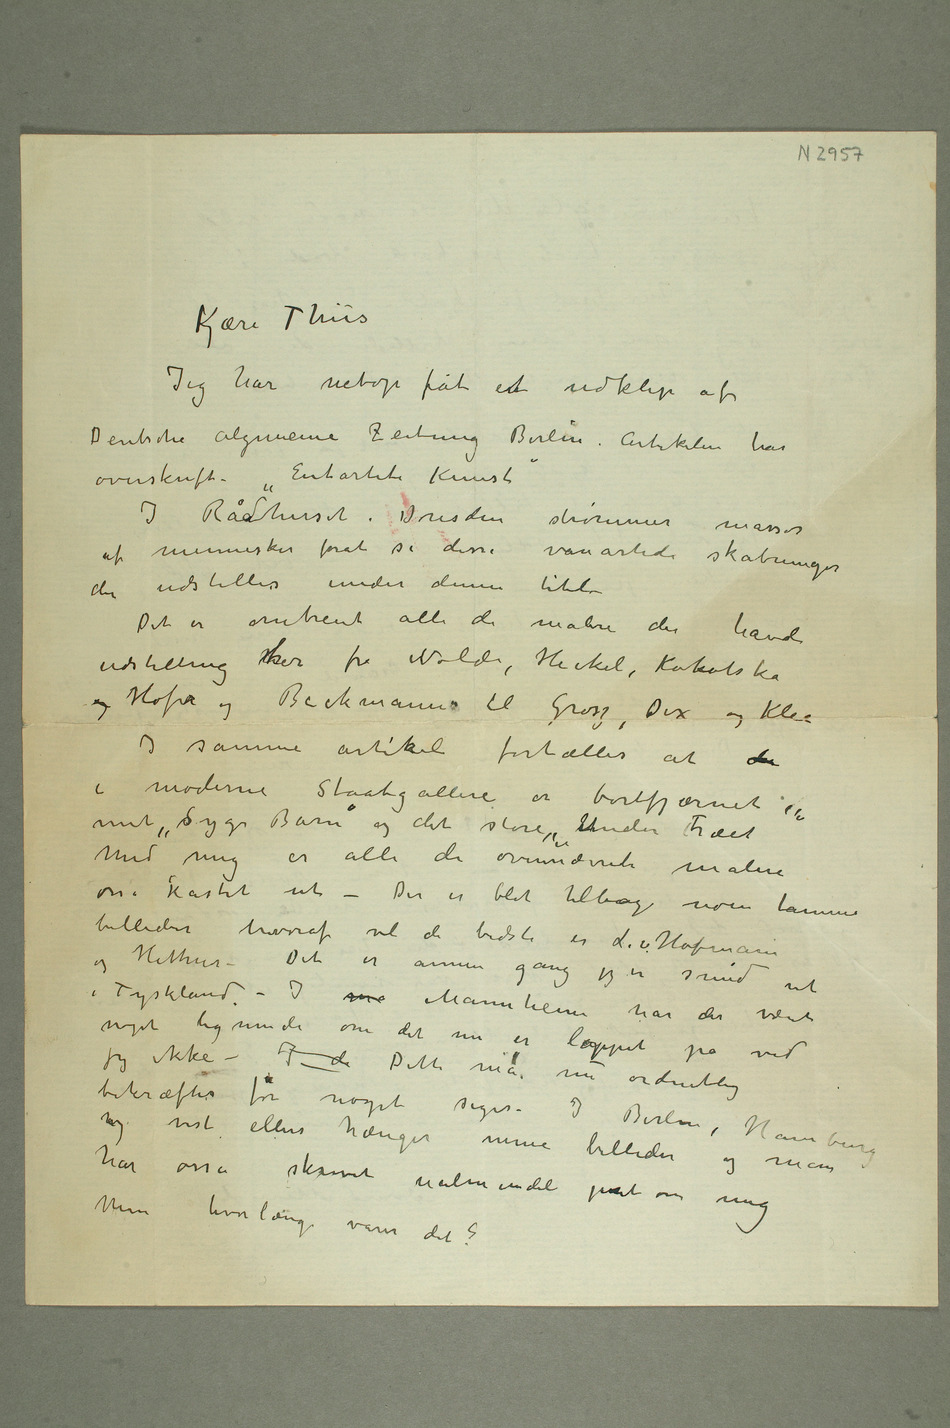 N 2957
Kjære Thiis
Jeg har netop fåt et udklip af
Deutsche algmeine Zeitung Berlin. Artikelen har
overskrift – „Entartete Kunst“
I Rådhuset i Dresden strømmer masser
af mennesker forat se disse vanartede skabninger
der udstilles under denne titel –
Det er omtrent alle de malere der havde
udstilling her fra Nolde, Heckel, Kokotska
og Hofer og Beckmann til Grosz, Dix og Klee
I samme artikel fortælles at de
i moderne Staatsgallerie er bortfjærnet
mit „Syge Barn“ og det store „Under Træet“
Med mig er alle de ovennævnte malere
osså kastet ut – Der er blot tilbage noen tamme
billeder hvoraf vel de bedste er L. v. Hofmann
og Hettner – Det er annen gang jeg er smidt ut
i Tyskland. – I ma Mannheim har der været
noget lignende om det nu er lappet på ved
jeg ikke – I de Dette må nu ordentlig
bekræftes før noget siges – I Berlin, Hamburg
og vist ellers hænger mine billeder og man
har osså skrevet ualmindel pent om mig
Men hvorlænge varer det?